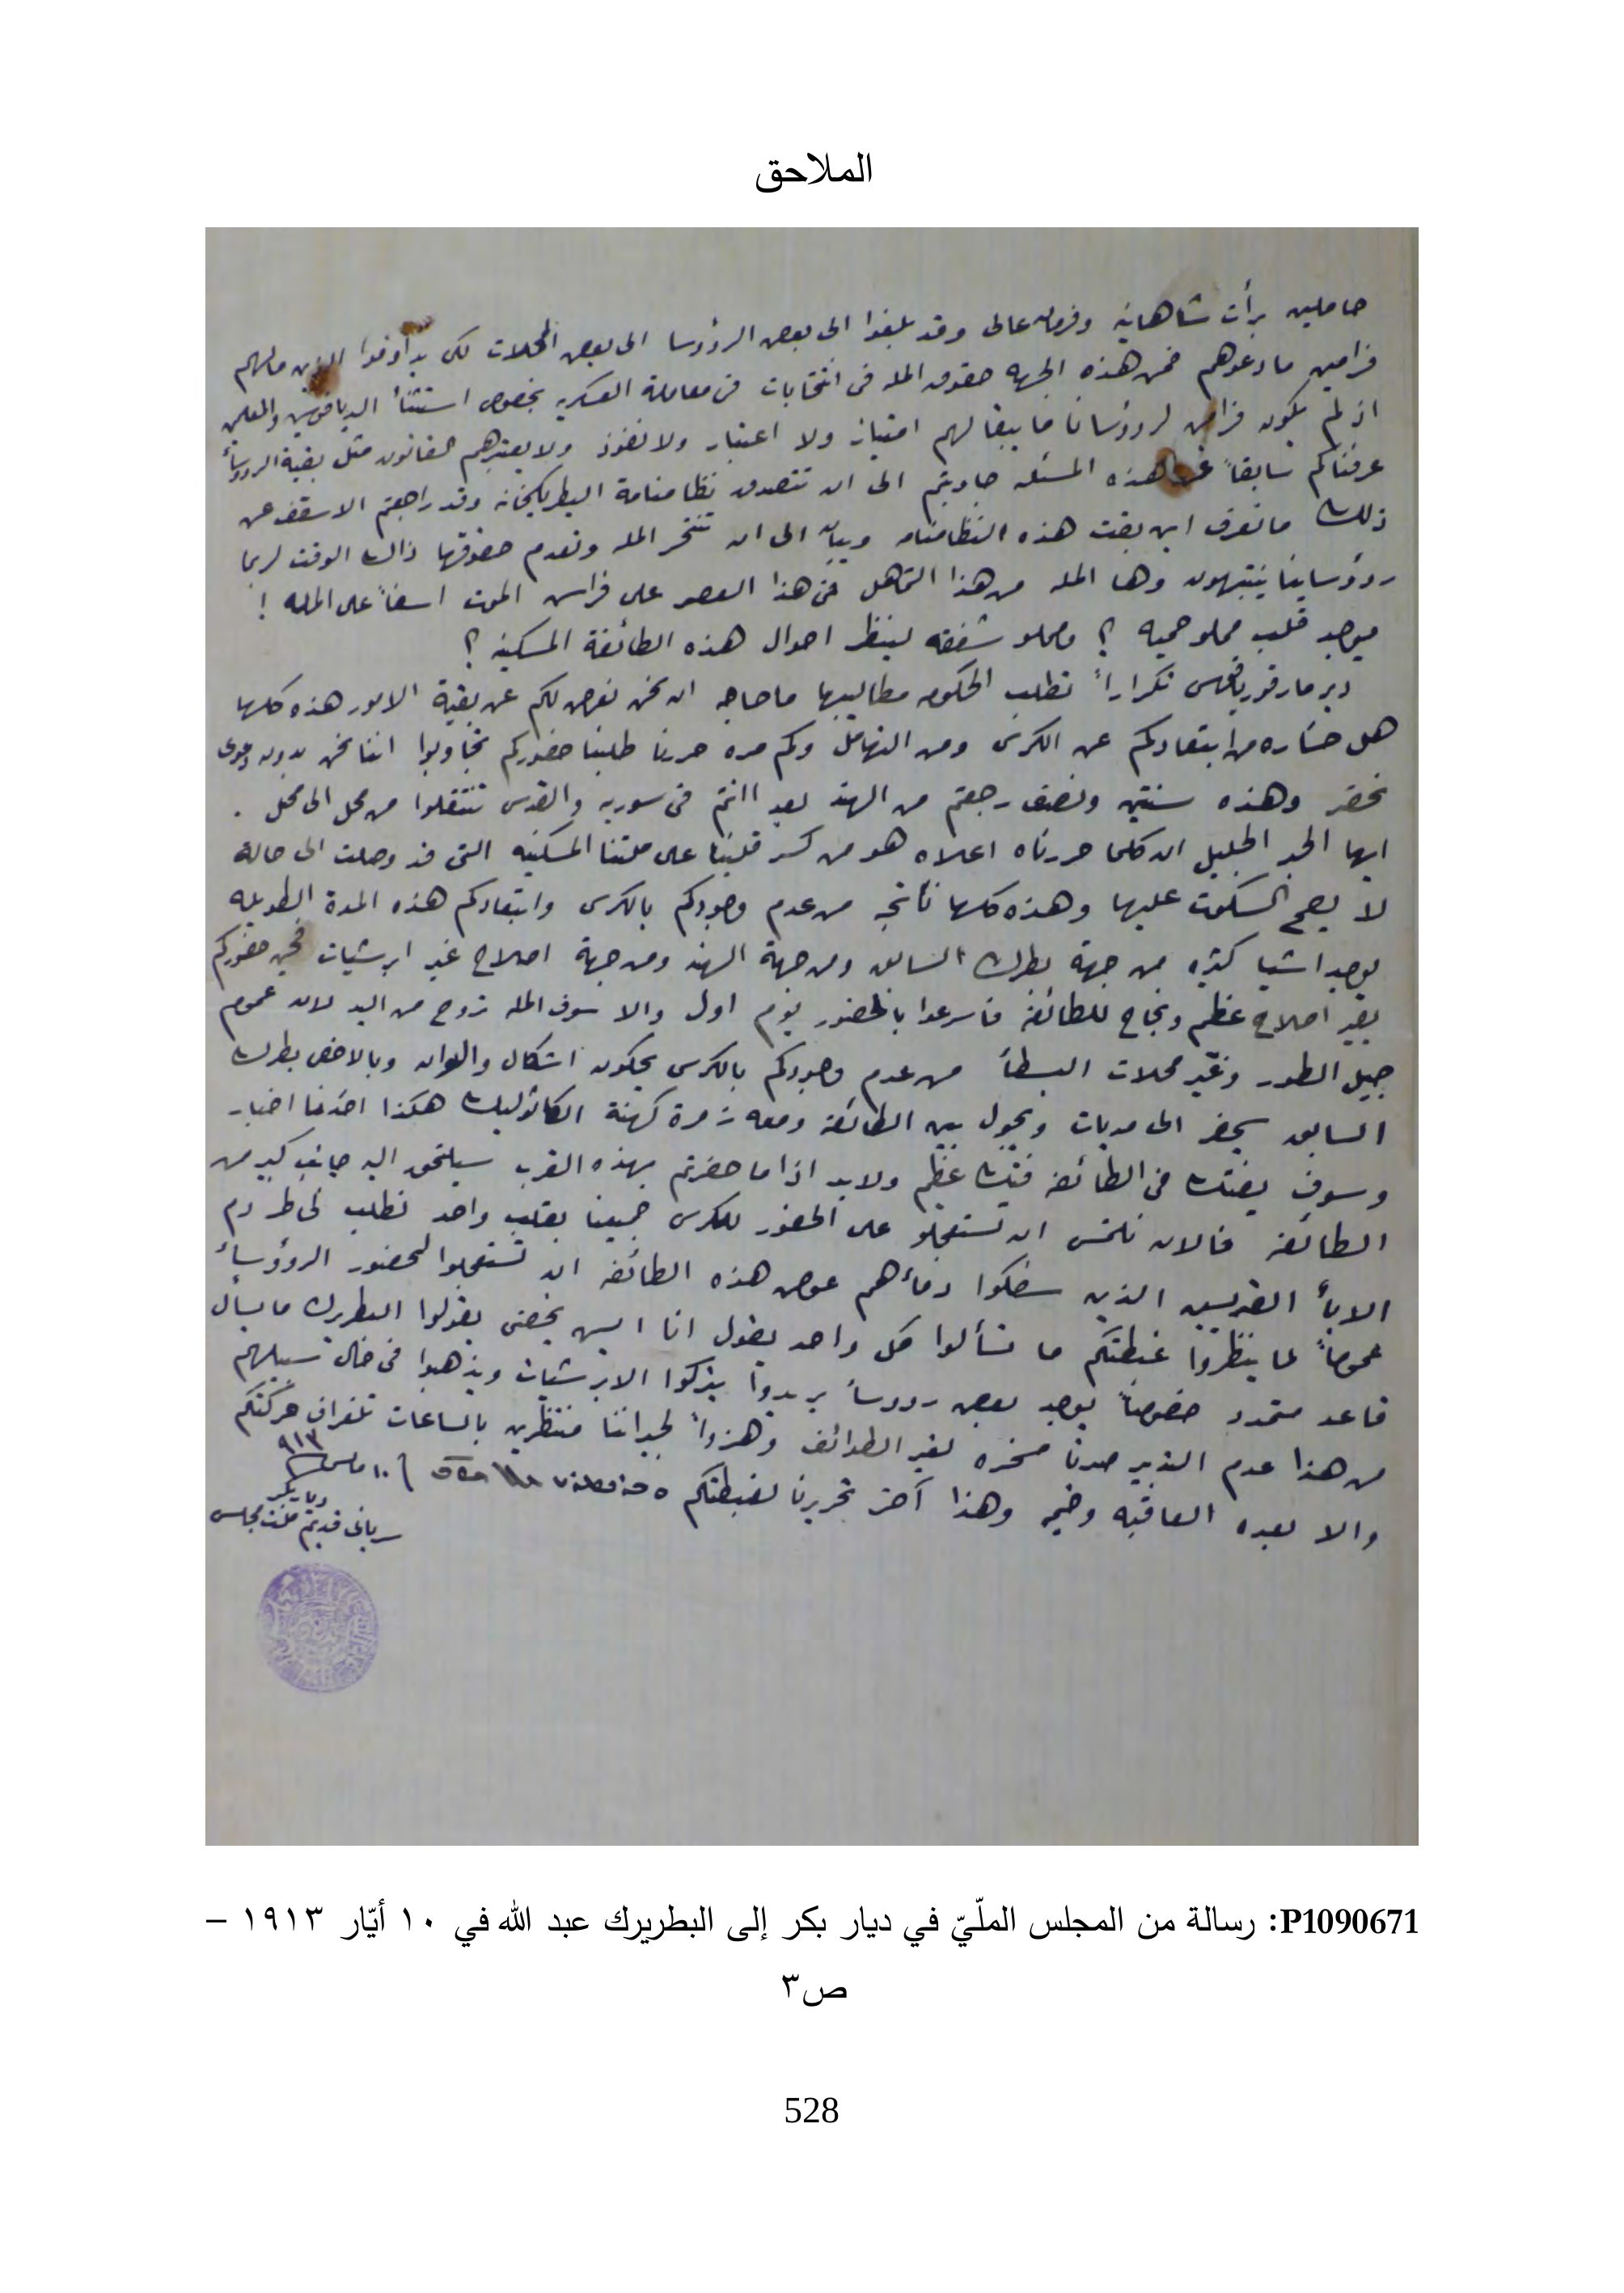 الملاحق
حاملين برأت شاهانيه وفرمان عالى وقد بلغوا الى بعض الرؤوسا الى بعض المحلات لكى يداوفوا الذين مالهم
فرامين مادعوهم ضمن هذه الجهه حقوق المله فى انتخابات فى معاملة العسكريه بخصوص استثنأ الدياقوسين والمعلمين
اذ لم يكون فرامين لرؤوسانا ما يبقا لهم امتياز ولا اعتبار ولا نفوذ ولا يعتبرهم القانون مثل بقية الرؤوسأ
عرفناكم سابقاً عن هذه المسئله جاوبتم الى ان تتصدق نظامنامة البطريكخانه وقد راجعتم الاسقف عن
ذلك ما نعرف اين بقت هذه النظامنامه وبيان الى ان تنتخر المله وتعدم حقوقها ذالك الوقت لربما
رؤوساينا ينتبهون وها المله من هذا التماهل فى هذا العصر على فراس الموت اسفاً على المله !
ميوجد قلب مملو حميه ؟ ومملو شفقه لينظر احوال هذه الطائفة المسكينه ؟
دير مارقورياقس تكراراً تطلب الحكومه مطاليبها ما حاجه ان نحن نعرض لكم عن بقية الامور هذه كلها
هل خساره من ابتعادكم عن الكرسى ومن التهامل وكم مره حررنا طلبنا حضوركم تجاوبوا اننا نحن بدون دعوى
نحضر وهذه سنتين ونصف رجعتم من الهند بعد اانتم فى سوريه والقدس تنتقلوا من محل الى محل .
ايها الحبر الجليل ان كلما حررناه اعلاه هو من كسر قلبنا على ملتنا المسكنيه التى قد وصلت الى حالة
لا يصح السكوت عليها وهذه كلها ناتجه من عدم وجودكم بالكرسى وابتعادكم هذه المدة الطويله
يوجد اشيا كثيره من جهة بطرك السابق ومن جهة الهند ومن جهة اصلاح غير ابرشيات فحين حضوركم
يصير اصلاح عظيم ونجاح للطائفه فاسرعوا بالحضور يوم اول والا سوف المله تروح من اليد لان عموم
جبل الطور وغير محلات البسطأ من عدم وجودكم بالكرسى يحكون اشكال والوان وبالاخص بطرك
السابق يحضر الى مديات ويجول بين الطائفه ومعه زمرة كهنة الكاثوليك هكذا اخذنا اخبار
وسوف يفتك فى الطائفه فتك عظيم ولابد اذا ما حضرتم بهذه القرب سيلتحق اليه جانب كبير من
الطائفه فالان نلتمس ان تستعجلو على الحضور للكرسى جميعنا بقلب واحد نطلب لخاطر دم
الابأ القديسين الذين سفكوا دمأهم عوض هذه الطائفه ان تستعجلوا لحضور الرؤوسأ
عموماً لما ينظروا غبطتكم ما تسألوا كل واحد يقول انا ايس يخصنى يقولوا البطريرك ما يسأل
قاعد متمدد خصوصاً يوجد بعض رؤوسأ يريدوا يتركوا الابرشيات ويذهبوا فى خال سبيلهم
من هذا عدم التدبير صرنا مسخره لغير الطوائف وهزواً لجيراننا منتظرين بالساعات تلغراف حركتكم
والا بعده العاقبه وخيمه وهذا آخر تحريرنا لغبطتكم ١٠ مايس ٩١٣
ديابكر
سريانى قديم ملت مجلسى
P1090671: رسالة من المجلس الملّيّ في ديار بكر إلى البطريرك عبد الله في ١٠ أيّار ١٩١٣ –
ص٣
528